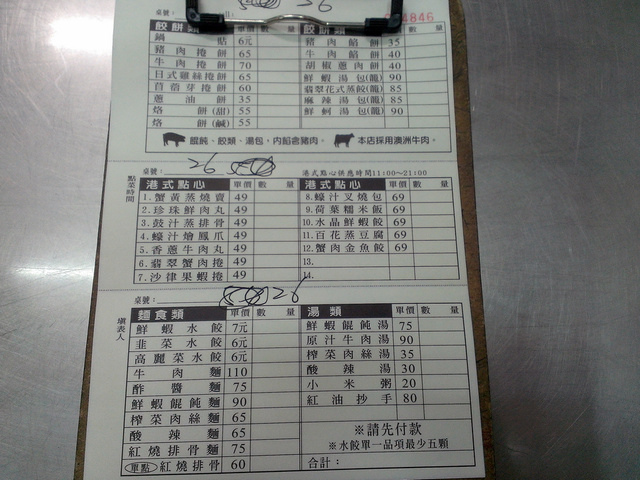 桌號: 26
餃餅類 單價 數量 餃餅類 單價 數量
鍋貼 6元 豬肉餡餅 35
豬肉捲餅 65 牛肉餡餅 40
牛肉捲餅 70 胡椒蔥肉餅 40
日式雞絲捲餅 65 鮮蝦湯包(籠) 90
苜蓿芽捲餅 60 翡翠花式蒸餃(籠) 85
蔥油餅 35 麻辣湯包(籠) 85
烙餅(甜) 55 鮮蚵湯包(籠) 90
烙餅(鹹) 55
餛飩、餃類、湯包,內餡含豬肉。 本店採用澳洲牛肉。
點菜時間
桌號: 26 港式點心供應時間11:00~21:00
港式點心 單價 數量 港式點心 單價 數量
1.蟹黃蒸燒賣 49 8.蠔汁叉燒包 69
2.珍珠鮮肉丸 49 9.荷葉糯米飯 69
3.豉汁蒸排骨 49 10.水晶鮮蝦餃 69
4.蠔汁燴鳳爪 49 11.百花蒸豆腐 69
5.香蔥牛肉丸 49 12.蟹肉金魚餃 69
6.翡翠蟹肉捲 49 13.
7.沙律果蝦捲 49 14.
填表人
桌號: 26
麵食類 單價 數量 湯類 單價 數量
鮮蝦水餃 7元 鮮蝦餛飩湯 75
韭菜水餃 6元 原汁牛肉湯 90
高麗菜水餃 6元 榨菜肉絲湯 35
牛肉麵 110 酸辣湯 30
酢醬麵 75 小米粥 20
鮮蝦餛飩麵 90 紅油抄手 80
榨菜肉絲麵 65
酸辣麵 65 ※請先付款
紅燒排骨麵 75 ※水餃單一品項最少五顆
(單點)紅燒排骨 60 合計: